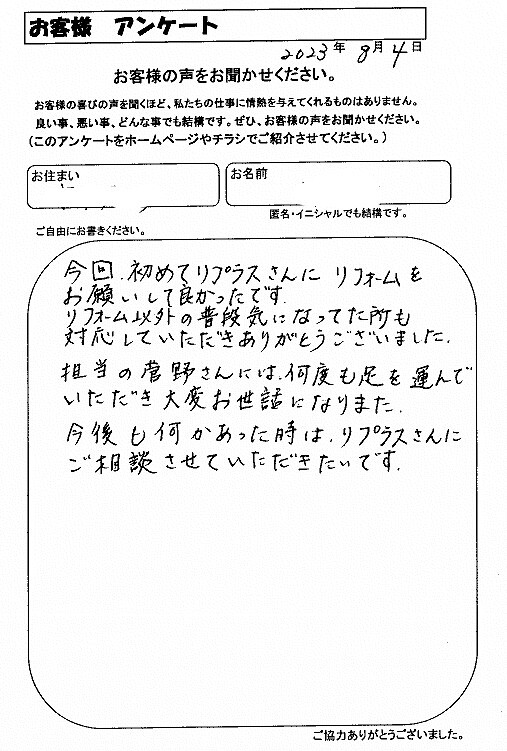 お客様 アンケート
2023年 8月 4日
お客様の声をお聞かせください。
お客様の喜びの声を聞くほど、私たちの仕事に情熱を与えてくれるものはありません。
良い事、悪い事、どんな事でも結構です。ぜひ、お客様の声をお聞かせください。
(このアンケートをホームページやチラシでご紹介させてください。)
お住まい
お名前
匿名・イニシャルでも結構です。
ご自由にお書きください。
今回、初めてリプラスさんに リフォームを
お願いして良かったです.
リフォーム以外の普段気になってた所も
対応していただきありがとうございました.
担当の菅野さんには、何度も足を運んで
いただき大変お世話になりまた.
今後も何かあった時は、リプラスさんに
ご相談させていただきたいです.
ご協力ありがとうございました。